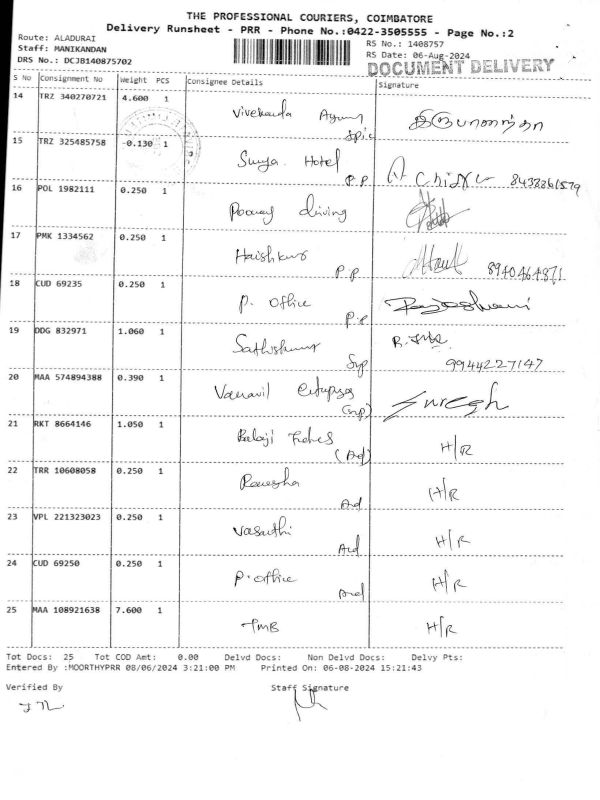 THE PROFESSIONAL COURIERS, COIMBATORE
Delivery Runsheet - PRR - Phone No.:0422-3505555 - Page No.:2
Route: ALADURAI
RS No.: 1408757
Staff: MANIKANDAN
RS Date: 06-Aug-2024
DRS No.: DCJB140875702
DOCUMENT DELIVERY
S No Consignment No Weight PCS Consignee Details Signature
14 TRZ 340270721 4.600 1 Vivekanda
15 TRZ 325485758 0.130 1 Surya Hotel P.P 8438361579
16 POL 1982111 0.250 1 driving
17 PMK 1334562 0.250 1 P.P 8940464871
18 CUD 69235 0.250 1 P. office Rajeshwari
19 DDG 832971 1.060 1 Sathishkumar 9944227147
20 MAA 574894388 0.390 1 Suregh
21 RKT 8664146 1.050 1 Balaji H/R
22 TRR 10608058 0.250 1 H/R
23 VPL 221323023 0.250 1 Vasanthi H/R
24 CUD 69250 0.250 1 P.office H/R
25 MAA 108921638 7.600 1 TMB H/R
Tot Docs: 25 Tot COD Amt: 0.00 Delvd Docs: Non Delvd Docs: Delvy Pts:
Entered By :MOORTHYPRR 08/06/2024 3:21:00 PM Printed On: 06-08-2024 15:21:43
Verified By Staff Signature